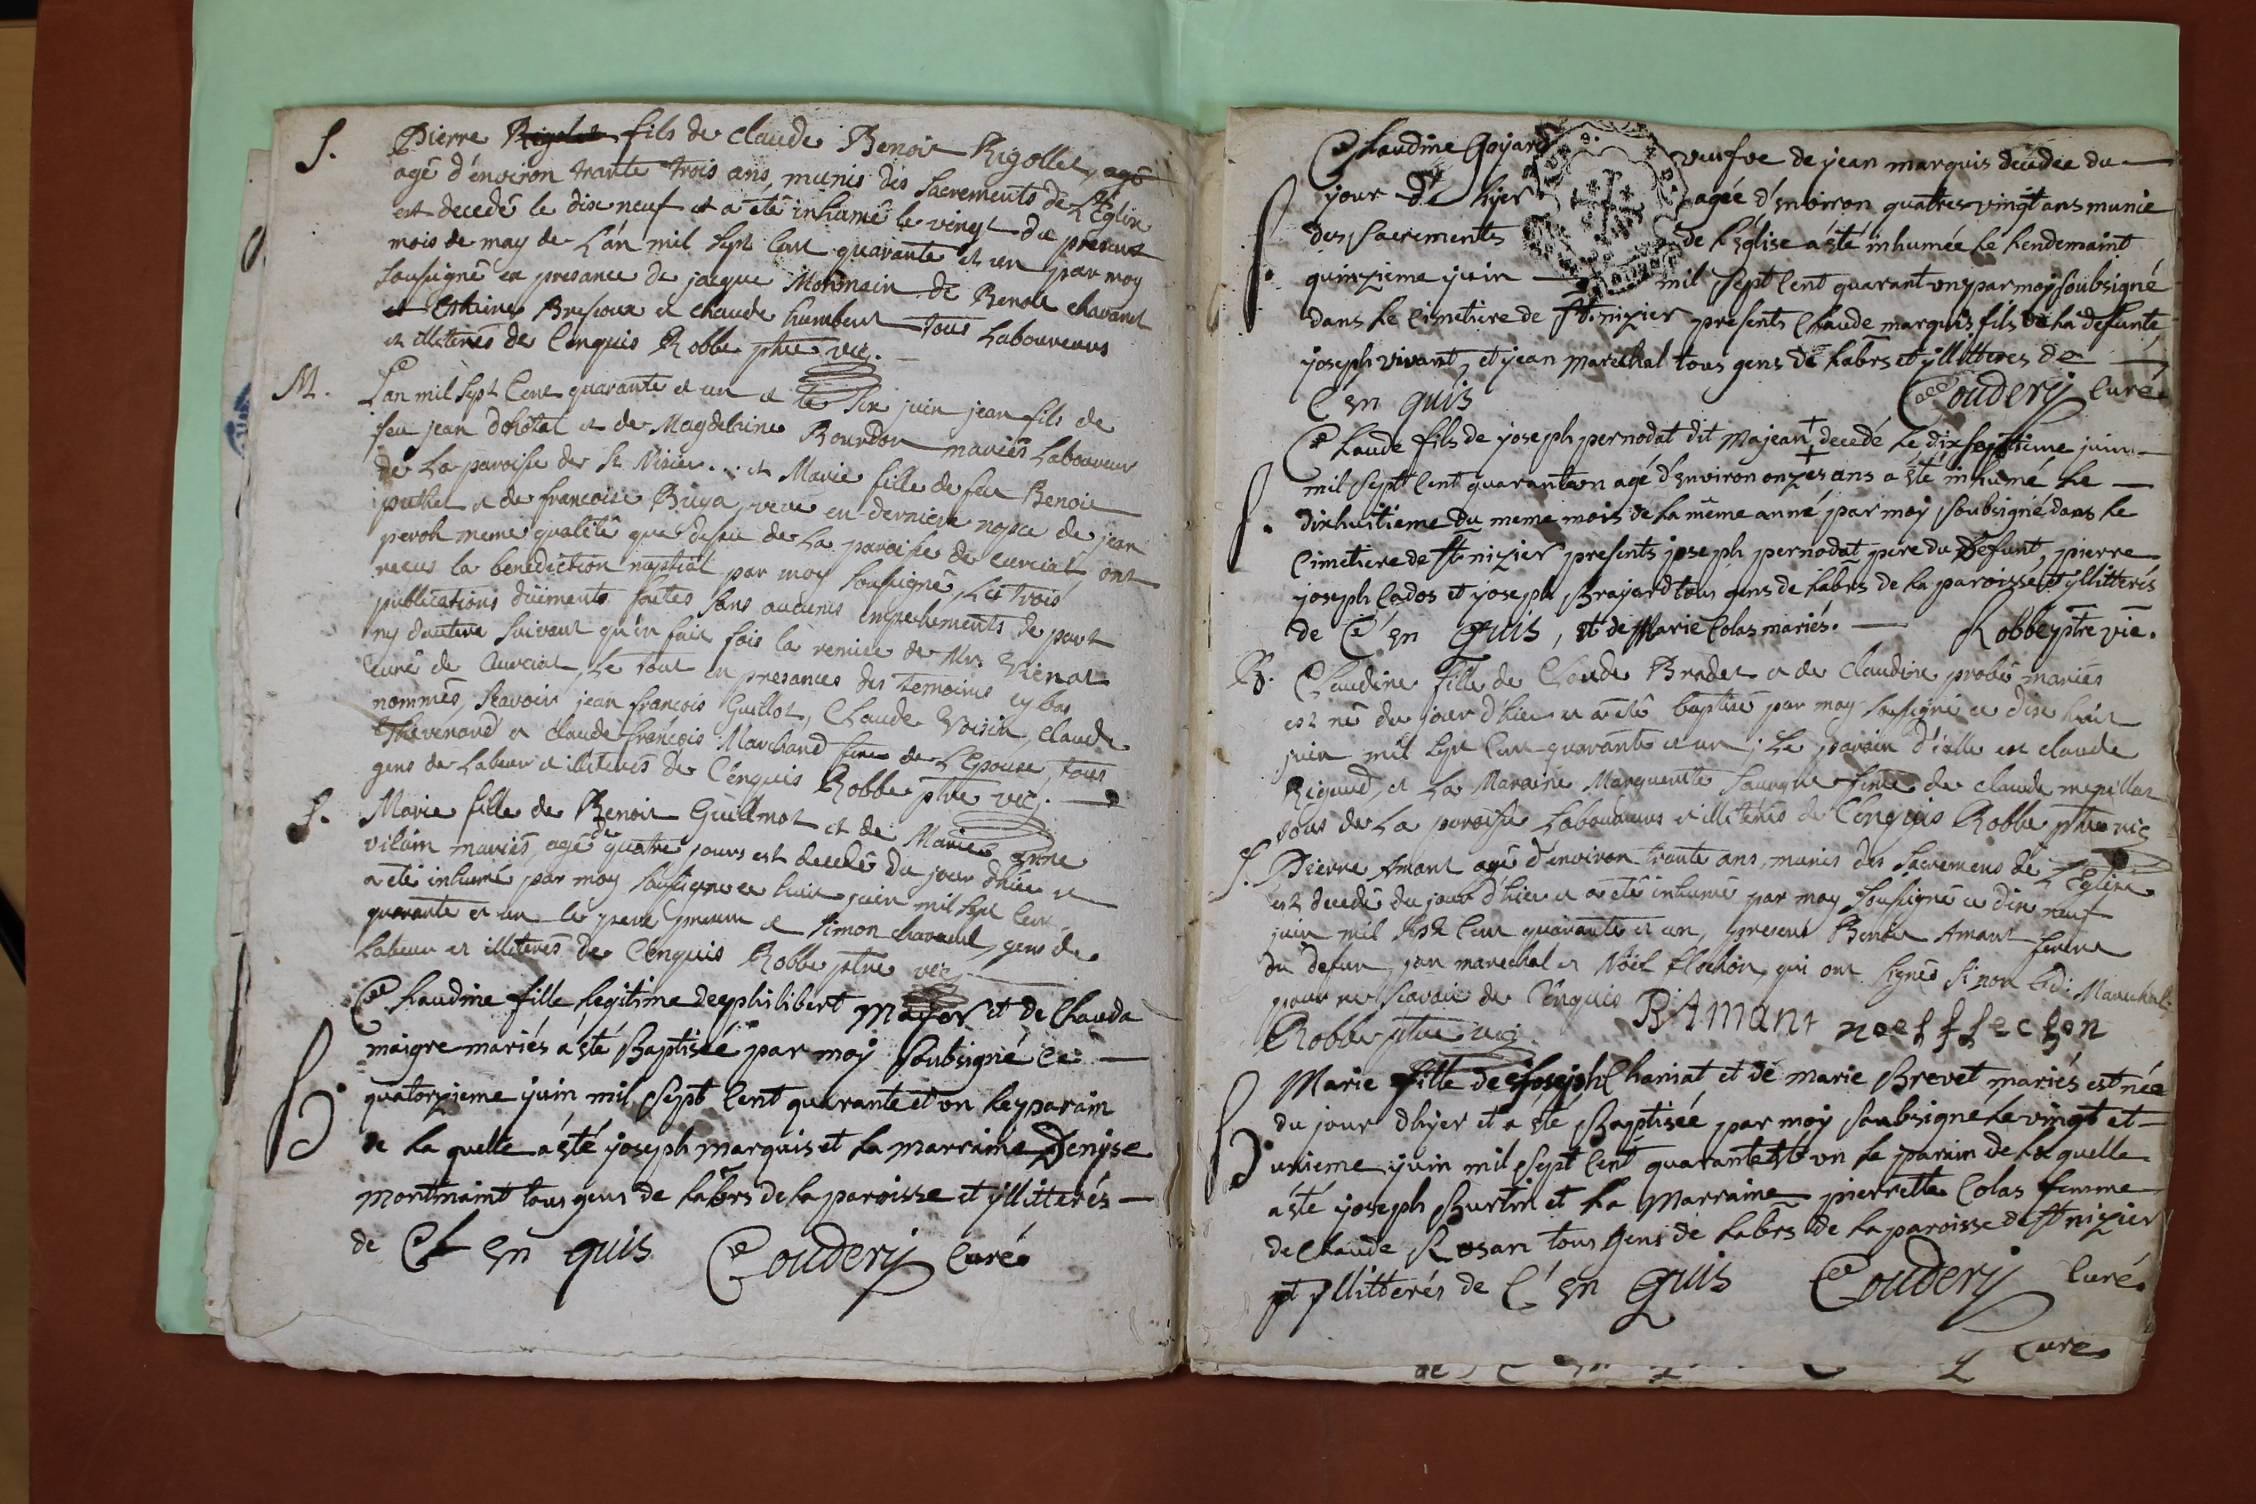 S.
Pierre Rigolet fils de claude Benoit Rigollet, agé
agé d'environ trante trois ans, munis des Sacrements de L'Eglise
est decedé le dixneuf et a été inhumé le vingt du present
mois de may de L'an mil sept Cent quarante et un par moy
soussigné en presance de jacque Monmain de Benoit chavanel
et Bresoux et claude humbert tous Laboureurs
et illiterés de Cenquis Robbe ptre vic.
M.
L'an mil sept Cent quarante et un et le Six juin jean fils de
feu jean dhôtal et de Magdelaine Bourdon mariés Laboureur
de La paroisse de St. Nisier... et Marie fille de feu Benoit
puthet et de francoise Buga, veve en derniere nopce de jean
peroh meme qualité que desu de La paroisse de curciat ont
recus la benediction nuptial par moy soussigné, Les trois
publications duements faites sans aucuns empechements de part
ny dautre suivant qu'en fait fois la remise de Mr. Vienot
curé de Curciat, Le tout en presances des temoins cy bas
nommés, scavoir jean francois Guillot, Claude Voisin, claude
Thevenard et claude francois Marchand de L'Epouse, tous
gens de Labeur et illiterés de Cenquis Robbe ptre vic.
S.
Marie fille de Benoit Guillmot et de Marie anne
vilain mariés, agé de quatre jours est decedé du jour d'hier et
a été inhumé par moy soussigné ce huit juin mil sept Cent
quarante et un le pere present et Simon chavanel, gens de
Labeur et illiterés de Cenquis Robbe ptre vic.
B.
Claudine fille legitime de philibert Mayer et de Clauda
maigre mariés a esté Baptisée par moy soubsigné le
quatorzieme juin mil sept Cent quarante et un le parain
de la quelle a esté joseph marquis et la marraine Denyse
montmaint tous gens de labrs de la paroisse et yllitterés
de C en quis Couderij Curé
S.
Claudine Goyard veufve de jean marquis decedée du
jour d'hyer agée d'environ quatres vingt ans munie
des sacrements de l'Eglise a esté inhumée le lendemaint
quinzieme juin mil sept Cent quarant un par moy soubsigné
dans le Cimetiere de St. nizier presents Claude marquis fils de la defunte
joseph vivant, et jean marechal tous gens de labrs et yllitteres de
C en quis Couderij Curé
S.
Claude fils de joseph pernodat dit majean decedé le dixseptieme juin
mil sept Cent quarante un agé d'environ onzes ans a esté inhumé le
dixhuitieme du meme mois de la même anné par moy soubsigné dans le
Cimetiere de St. nizier presents joseph pernodat pere du Defunt, pierre
joseph Cados et joseph Brayard tous gens de labrs de la paroisse et yllitterés
de C en quis, et de Marie Colas mariés. Robbe ptre vic.
B.
Claudine fille de Claude Bradet et de claudine probé mariés
est né du jour d'hier et a été baptisé par moy soussigné ce dix huit
juin mil sept Cent quarante et un, Le parain d'icelle est claude
Rigaud, et La Maraine Marguerite Sauvgne feme de claude mepillat
tous de La paroisse Laboureurs et illiterés de Cenquis Robbe ptre vic
S.
Pierre Amant agé d'environ trante ans, munis des sacremens de L'Eglise
est decedé du jour d'hier et a été inhumé par moy soussigné ce dix neuf
juin mil sept Cent quarante et un, present Benoit Amant frere
du defun, jean marechal et Noël flochon, qui ont signés sinon Ledi: Marechal
pour ne scavoir de Cenquis B:Amant noel flechon
Robbe ptre vic
B.
Marie fille de joseph Chaniat et de marie Brevet mariés est née
du jour dhyer et a esté Baptisée par moy soubsigné le vingt et
unieme juin mil sept Cent quarante et un le parain de la quelle
a esté joseph Burtin et la marraine pierrette Colas femme
de Claude Rosan tous gens de labrs de la paroisse de St nizier
et yllitterés de C en quis Couderij Curé
Curé